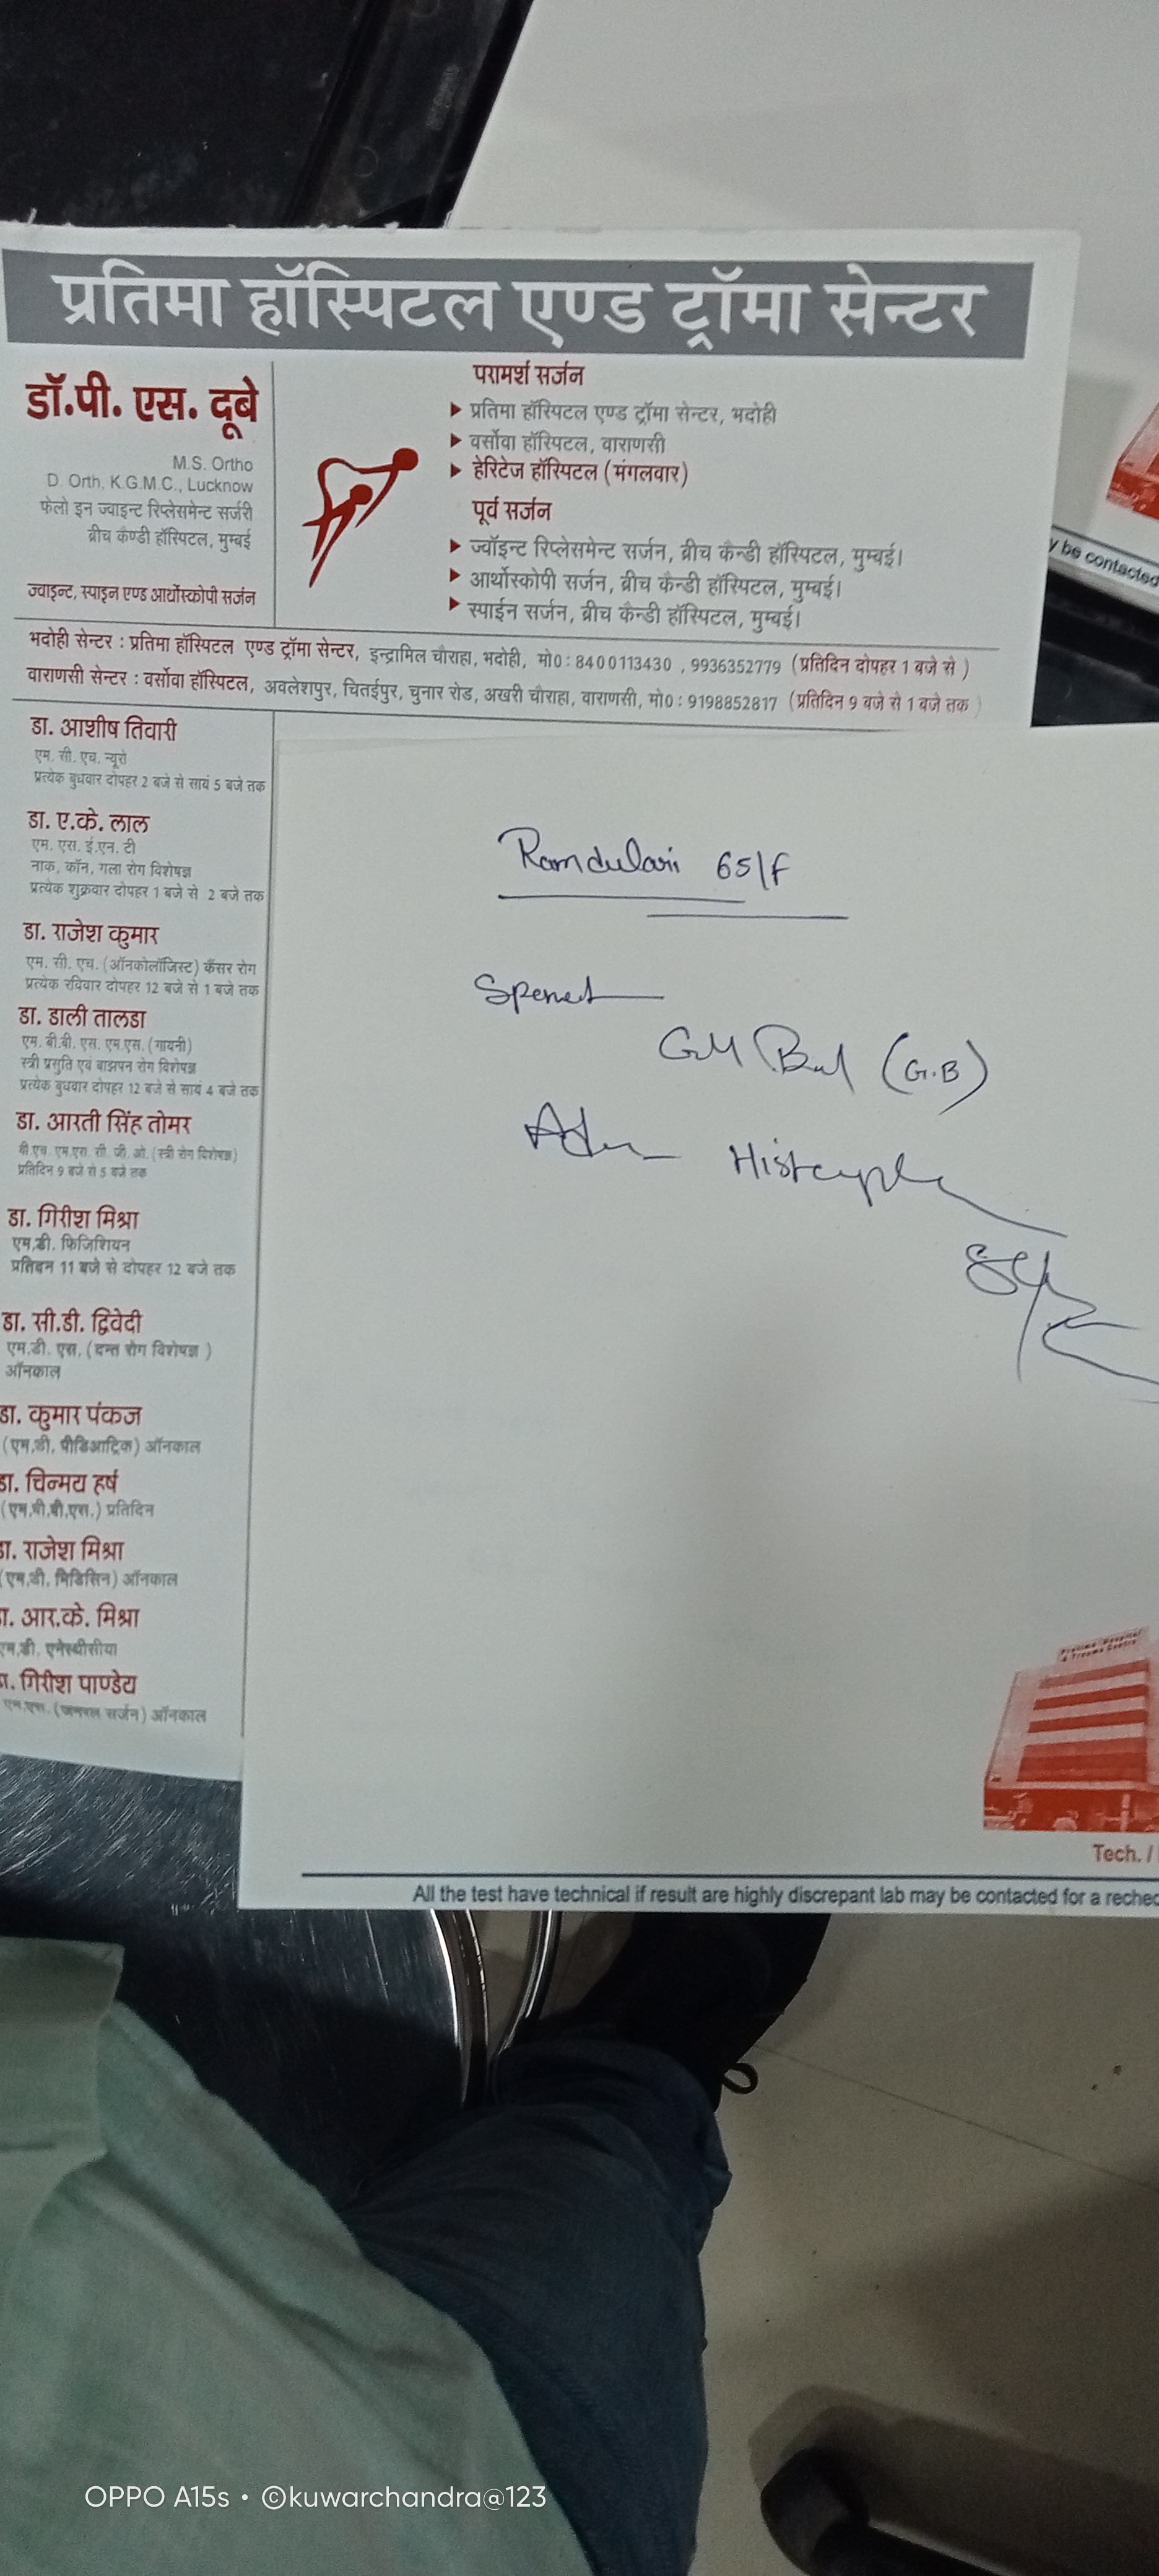 प्रतिमा हॉस्पिटल एण्ड ट्रॉमा सेन्टर
डॉ.पी. एस. दूबे
M.S. Ortho
D. Orth, K.G.M.C., Lucknow
फेलो इन ज्वाइन्ट रिप्लेसमेन्ट सर्जरी
ब्रीच कैण्डी हॉस्पिटल, मुम्बई
ज्वाइन्ट, स्पाइन एण्ड आर्थोस्कोपी सर्जन
परामर्श सर्जन
प्रतिमा हॉस्पिटल एण्ड ट्रॉमा सेन्टर, भदोही
वर्सोवा हॉस्पिटल, वाराणसी
हेरिटेज हॉस्पिटल (मंगलवार)
पूर्व सर्जन
ज्वॉइन्ट रिप्लेसमेन्ट सर्जन, ब्रीच कैन्डी हॉस्पिटल, मुम्बई।
आर्थोस्कोपी सर्जन, ब्रीच कैन्डी हॉस्पिटल, मुम्बई।
स्पाईन सर्जन, ब्रीच कैन्डी हॉस्पिटल, मुम्बई।
भदोही सेन्टर : प्रतिमा हॉस्पिटल एण्ड ट्रॉमा सेन्टर, इन्द्रामिल चौराहा, भदोही, मो0: 8400113430 , 9936352779 (प्रतिदिन दोपहर 1 बजे से )
वाराणसी सेन्टर : वर्सोवा हॉस्पिटल, अवलेशपुर, चितईपुर, चुनार रोड, अखरी चौराहा, वाराणसी, मो0: 9198852817 (प्रतिदिन 9 बजे से 1 बजे तक )
y be contacted
डा. आशीष तिवारी
एम. सी. एच. न्यूरो
प्रत्येक बुधवार दोपहर 2 बजे से सायं 5 बजे तक
डा. ए.के. लाल
एम. एस. ई.एन. टी
नाक, कॉन, गला रोग विशेषज्ञ
प्रत्येक शुक्रवार दोपहर 1 बजे से 2 बजे तक
डा. राजेश कुमार
एम. सी. एच. (ऑनकोलॉजिस्ट) कैंसर रोग
प्रत्येक रविवार दोपहर 12 बजे से 1 बजे तक
डा. डाली तालडा
एम. बी.बी. एस. एम.एस. (गायनी)
स्त्री प्रसुति एवं बाझपन रोग विशेषज्ञ
प्रत्येक बुधवार दोपहर 12 बजे से सायं 4 बजे तक
डा. आरती सिंह तोमर
सी. जी. ओ. (स्त्री रोग विशेषज्ञ)
प्रतिदिन 9 बजे से 5 बजे तक
डा. गिरीश मिश्रा
एम.डी. फिजिशियन
प्रतिदिन 11 बजे से दोपहर 12 बजे तक
डा. सी.डी. द्विवेदी
एम.डी. एस. (दन्त रोग विशेषज्ञ )
ऑनकाल
डा. कुमार पंकज
(एम.डी. पीडिआट्रिक) ऑनकाल
डा. चिन्मय हर्ष
(एम.बी.बी.एस.) प्रतिदिन
डा. राजेश मिश्रा
(एम.डी. मिडिसिन) ऑनकाल
डा. आर.के. मिश्रा
एम.डी. एनेस्थीसीया
डा. गिरीश पाण्डेय
एम.एस. (जनरल सर्जन) ऑनकाल
Ramdulari 65/F
(G.B)
Pratima Hospital
& Trauma Centre
Tech. /
All the test have technical if result are highly discrepant lab may be contacted for a rechec
OPPO A15s • ©kuwarchandra@123